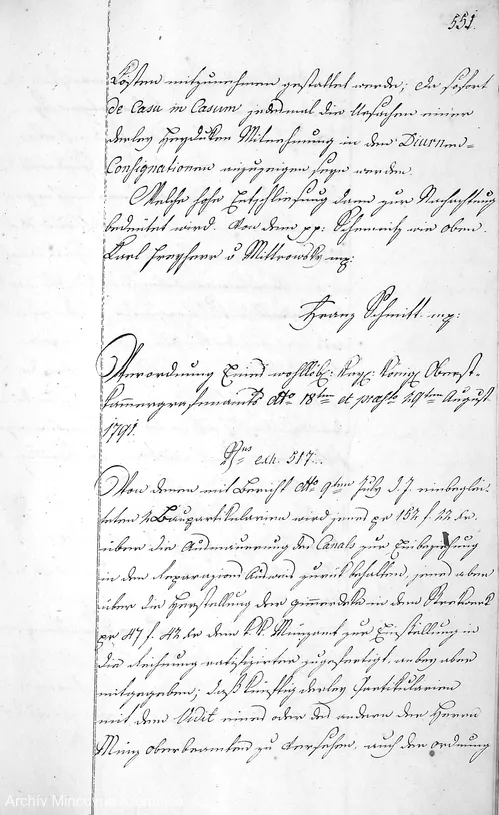 551.
Kösten mitzunehmen gestattet werde; da sofort
de Casu in Casum jedesmal die Ursachen einer
derley Heyduken Mitnehmung in den Diurnen-
Consignationen anzuzeigen seyn werden.
Welche hohe Entschließung dann zur Nachachtung
bedeutet wird. Von dem pp: Schemnitz wie oben.
Karl Freyherr v Mittrowsky mp:
Franz Schmitt. mp:
Verordnung Eines wohllöbl: Kay: König: Oberst-
kammergrafenamts dto 18ten et psto 29ten August
1791.
exh. 517.
Von denen mit Bericht dto 9ten July d. J. einbeglei-
teten 2 Bauparticularien wird jenes pr 152 f. 22 kr.
über die Ausmauerung des Canals zur Einbeziehung
in den Reparazions Ausweis zurück behalten, jenes aber
über die Herstellung der Zimmerdeke in dem Streckwerk
pr 47 f. 42 kr dem k. k. Münzamt zur Einstellung in
die Rechnung ratifizirter zugefertigt, anbey aber
mitgegeben; daß künftig derley Partikularien
mit dem Vidit eines oder des andern der Herrn
Münz oberbeamten zu versehen, auch der Ordnung
Archiv Mincovne Kremnica